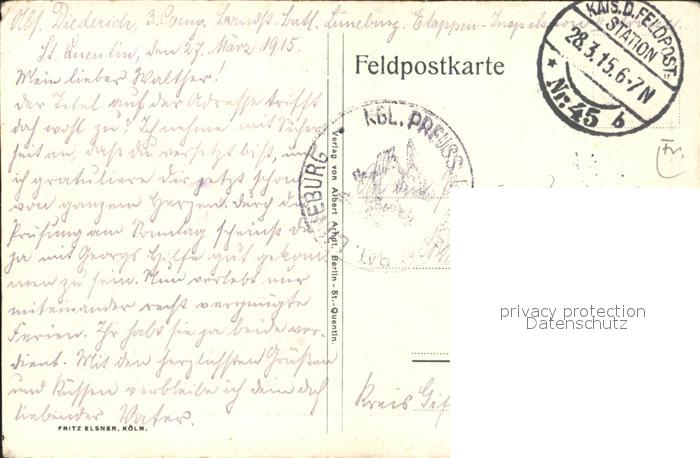 Obf. Diederich, 3. Comp. Landst.-Batl. Lüneburg. Etappen-Inspektion
St. Quentin, den 27. März 1915.
Mein lieber Walther!
Der Titel auf der Adresse trifft
doch wohl zu? Ich nehme mit Sicher-
heit an, daß du versetzt bist, und
ich gratuliere dir jetzt schon
von ganzem Herzen. Durch die
Prüfung am Sonntag scheinst du
ja mit Georgs Hilfe gut gekom-
men zu sein. Nun verlebt nur
miteinander recht vergnügte
Ferien. Ihr habt sie ja beide ver-
dient. Mit den herzlichsten Grüßen
und Küssen verbleibe ich dein dich
liebender Vater.
FRITZ ELSNER, KÖLN.
Verlag von Albert Arndt, Berlin - St.-Quentin.
Feldpostkarte
KAIS. D. FELDPOST-
STATION
28.3.15.6-7N
* Nr. 45 b
KGL. PREUSS.
Fr.
Kreis
privacy protection
Datenschutz